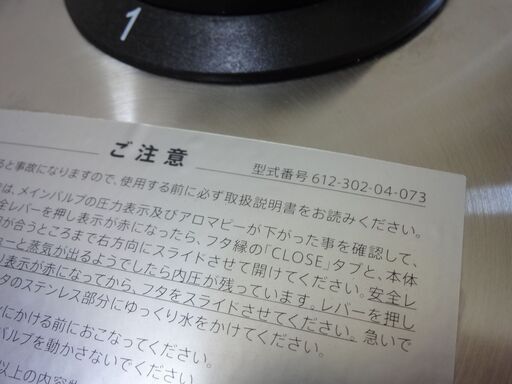 1
ご注意
型式番号 612-302-04-073
ると事故になりますので、使用する前に必ず取扱説明書をお読みください。
は、メインバルブの圧力表示及びアロマピーが下がった事を確認して、
全レバーを押し表示が赤になったら、フタ縁の「CLOSE」タブと、本体
が合うところまで右方向にスライドさせて開けてください。安全レ
ーっと蒸気が出るようでしたら内圧が残っています。レバーを押し
り表示が赤になってから、フタをスライドさせてください。急いで
タのステンレス部分にゆっくり水をかけてください。
にかける前におこなってください。
バルブを動かさないでください。
以上の内容